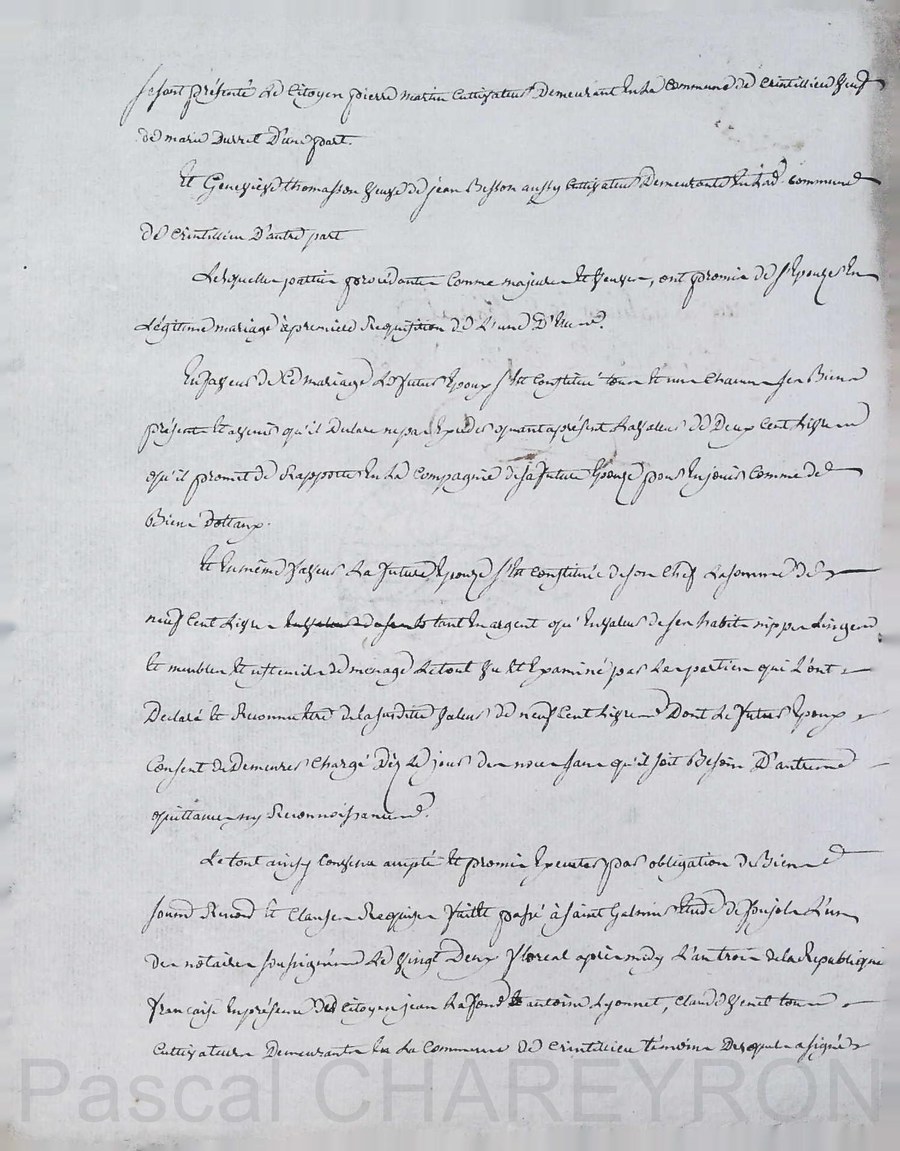 se sont présenté Le Citoyen pierre martin Cultivateur Demeurant En La Commune de Crintillieu Veuf
de marie Durret D'une part.
Et Genevieve thomasson Veuve de jean Besson aussy Cultivateur Demeurante En Lad. commune
de Crintillieu D'autre part
Lesquelles parties procédantes Comme majeures Et Veuves, ont promis de s'Epouzer En
Légitime mariage à première Requisition de L'une D'Elles.
En faveur de Ce mariage Le futur Epoux s'Est Constitué tous Et un Chacun ses Biens
présents Et avenir qu'il Declare ne pas Exceder quant a présent La valeur de Deux Cent Livres
qu'il promet de Rapporter En La Compagnie de sa future Epouze pour En jouir Comme de
Biens dottaux.
Et En même faveur La future Epouze s'Est Constituée de son Chef La somme de
neuf Cent Livres tant En argent qu'En valeur de ses habits nippes Linges
Et meubles Et ustenciles de menage Le tout Vu Et Examiné par Les parties qui L'ont
Declaré Et Reconnu Etre de la susdite valeur de neuf Cent Livres Dont Le futur Epoux
Consent de Demeurer Chargé Dès Le jour des noces sans qu'il soit Besoin D'autre
quittance ny Reconnoissance.
Le tout ainsy Convenu accepté Et promis Executer par obligation de Biens
soumis Renon. Et Clauses Requises fait Et passé à Saint Galmier Etude de Pujol L'un
des notaires soussignés Le Vingt Deux floreal après midy L'an trois de la Republique
francaise En présence des Citoyens jean Lafond Et antoine Lyonnet, Claude Venel tous
Cultivateurs Demeurants En La Commune de Crintillieu témoins Desquels a signé
Pascal CHAREYRON